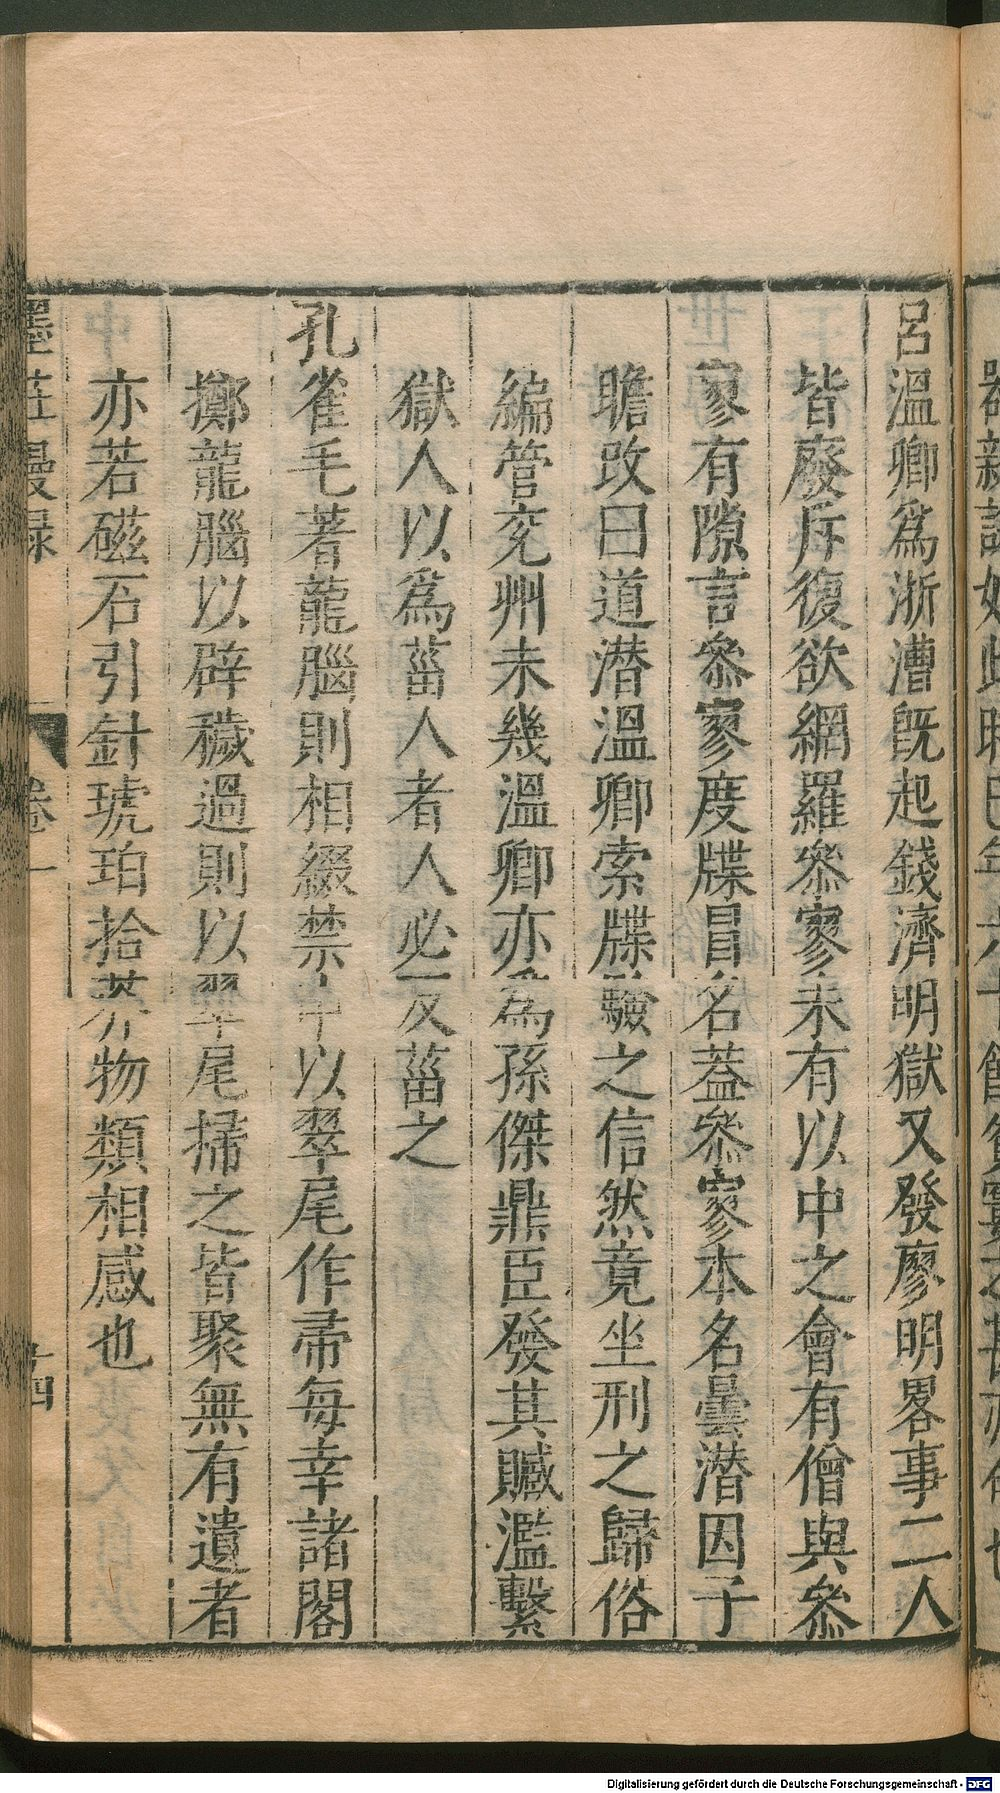 呂溫卿爲浙漕旣起錢濟明獄又發廖明畧事二人
皆廢斥復欲網羅叅寥未有以中之會有僧與叅
寥有隙言叅寥度牒冒名蓋叅寥本名曇潜因子
瞻改曰道潜溫卿索牒驗之信然竟坐刑之歸俗
編管兖州未幾溫卿亦爲孫傑鼎臣發其贜濫繫
獄人以爲菑人者人必反菑之
孔雀毛著龍腦則相綴禁中以翠尾作帚每幸諸閣
擲龍腦以辟穢過則以翠尾掃之皆聚無有遺者
亦若磁石引針琥珀拾芥物類相感也
墨莊漫録
卷一
十四
Digitalisierung gefördert durch die Deutsche Forschungsgemeinschaft - DFG